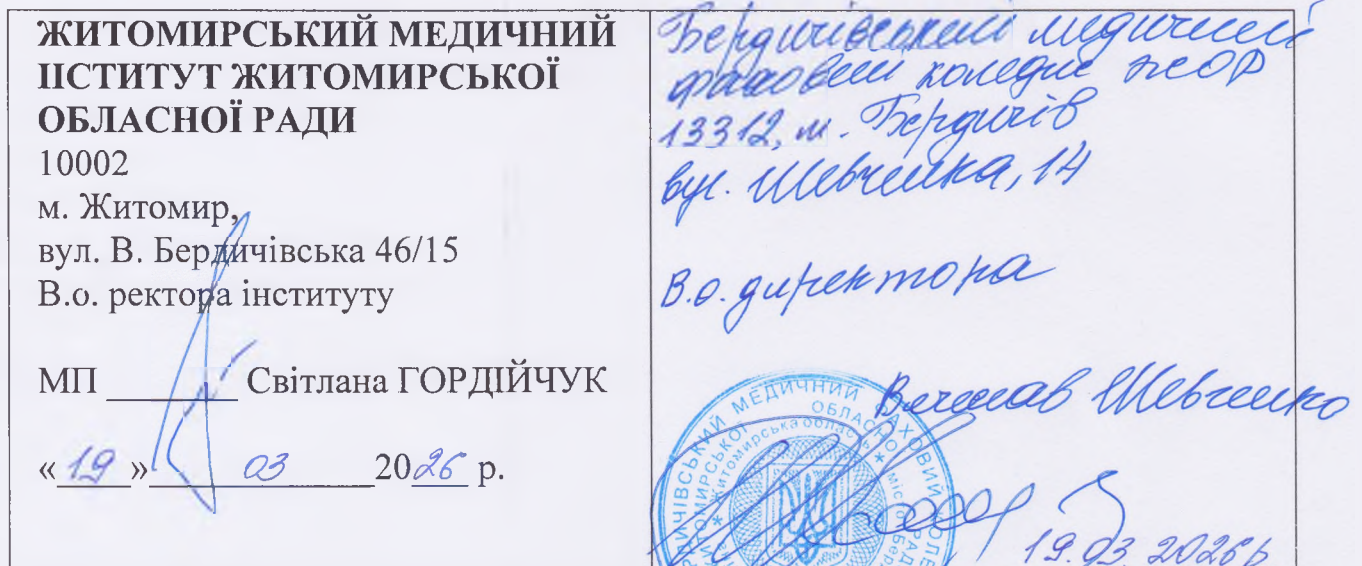 ЖИТОМИРСЬКИЙ МЕДИЧНИЙ
ІІСТИТУТ ЖИТОМИРСЬКОЇ
ОБЛАСНОЇ РАДИ
10002
м. Житомир,
вул. В. Бердичівська 46/15
В.о. ректора інституту
МП Світлана ГОРДІЙЧУК
«19» 03 2026 р.
Бердичівський медичний
фаховий коледж ЖОР
13312, м. Бердичів
вул. Шевченка, 14
В.о. директора
Вячеслав Шевченко
19.03.2026р